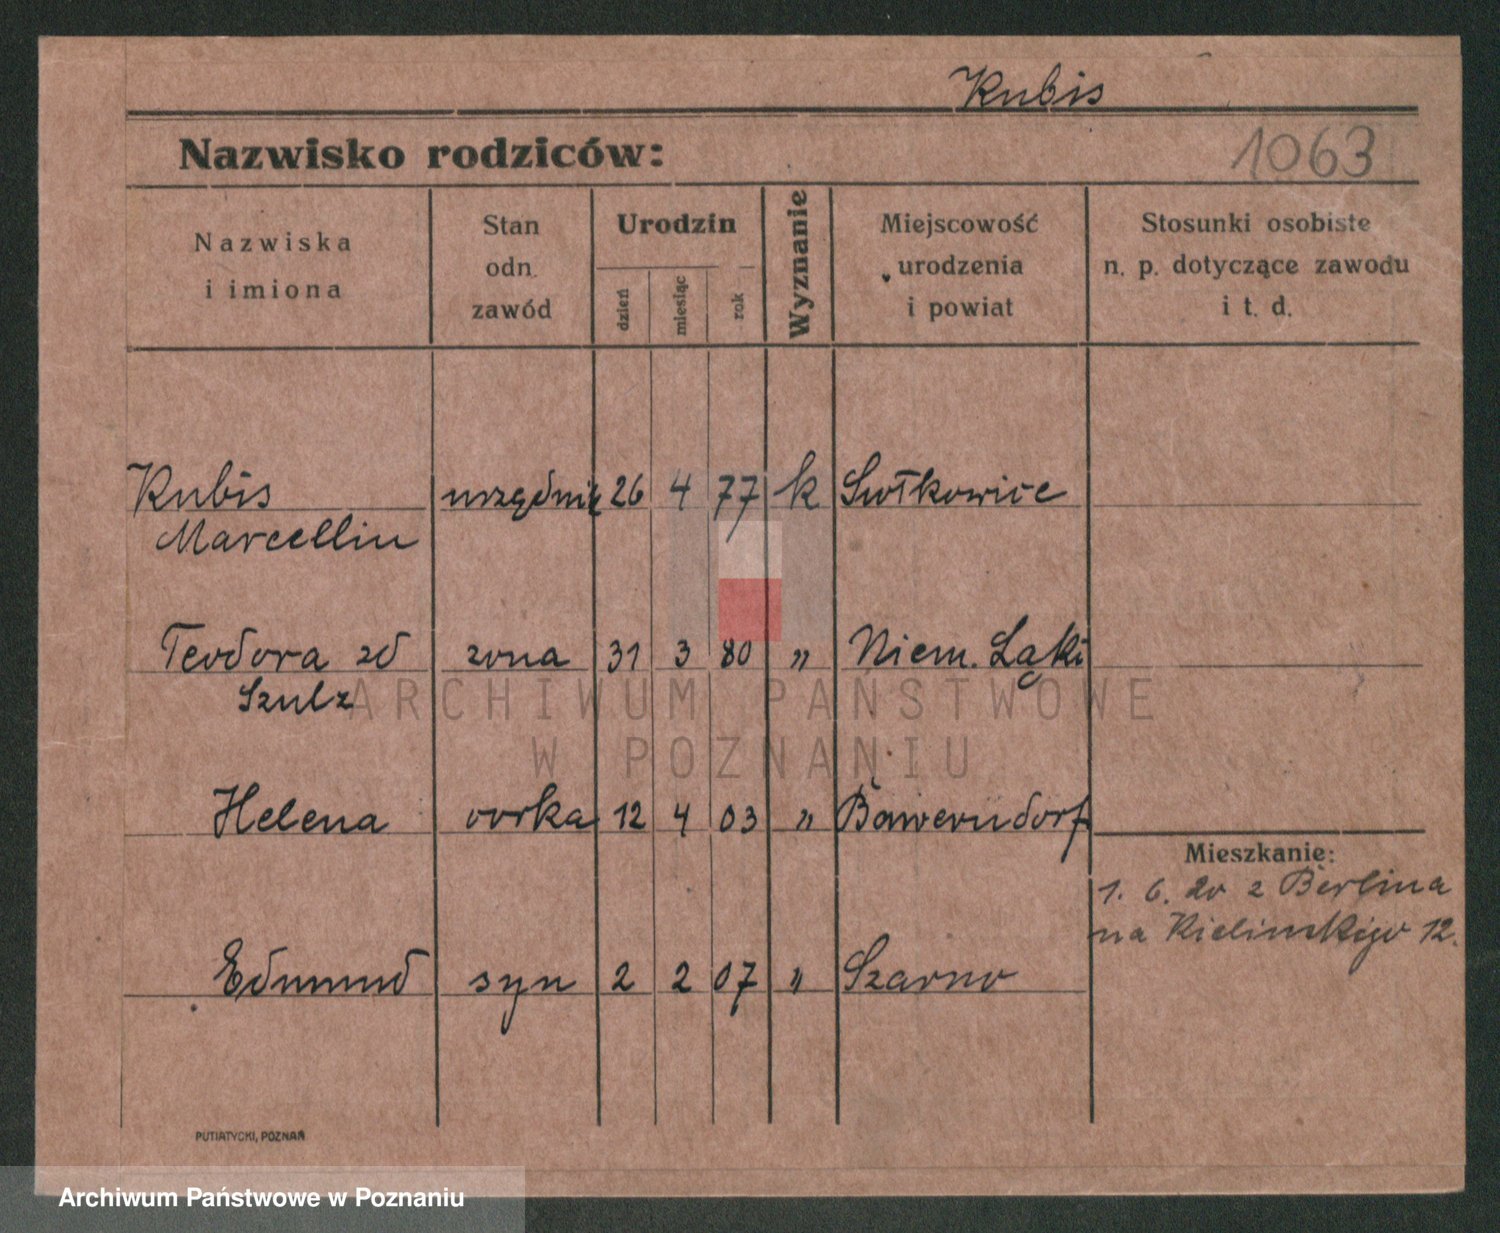 Kubis
Nazwisko rodziców:
1063
Nazwiska
i imiona
Stan
odn.
zawód
Urodzin
dzień
miesiąc
rok
Wyznanie
Miejscowość
urodzenia
i powiat
Stosunki osobiste
n. p. dotyczące zawodu
i t. d.
Kubis urzędnik 26 4 77 k
Marcellin
Teodora zd żona 31 3 80 „ Niem. Łąki
Szulz
ARCHIWUM PAŃSTWOWE
W POZNANIU
Helena córka 12 4 03 „ Bauerndorf
Mieszkanie:
1. 6. 20 z Berlina
na 12.
Edmund syn 2 2 07 „ Szarno
PUTIATYCKI, POZNAŃ
Archiwum Państwowe w Poznaniu